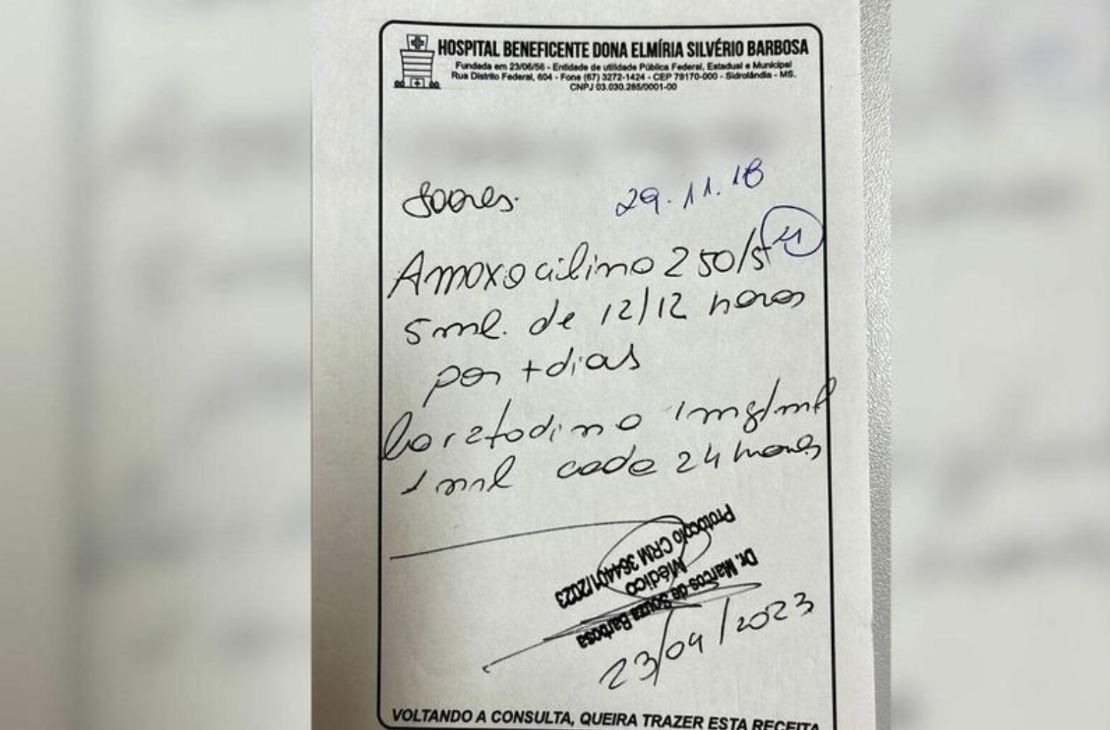 HOSPITAL BENEFICENTE DONA ELMÍRIA SILVÉRIO BARBOSA
Fundada em 23/06/56 - Entidade de utilidade Pública Federal, Estadual e Municipal
Rua Distrito Federal, 604 - Fone (67) 3272-1424 - CEP 79170-000 - Sidrolândia - MS.
CNPJ 03.030.285/0001-00
Soares. 29.11.18
Amoxocilino 250/5
5ml. de 12/12 horas
por + dias
loratodino 1mg/ml
1 ml cada 24 horas
Protocolo CRM 364401/2023
Médico
Dr. Marcos de Souza Barbosa
23/04/2023
VOLTANDO A CONSULTA, QUEIRA TRAZER ESTA RECEITA